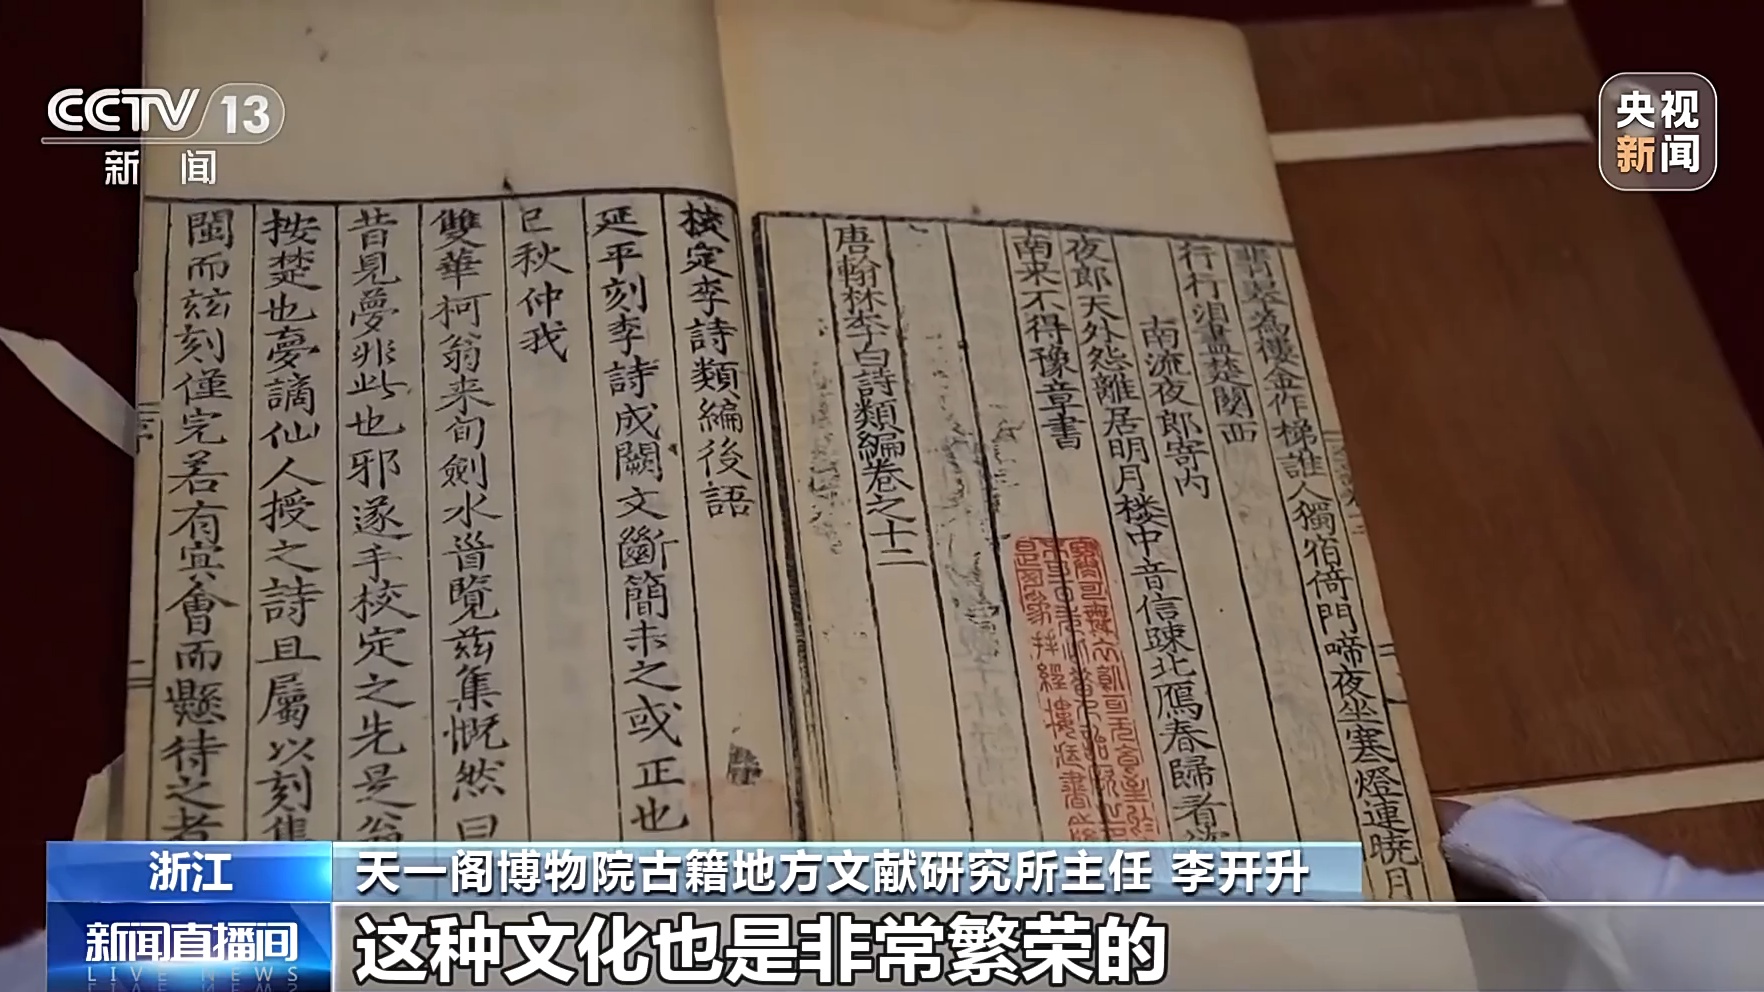 CCTV 13
新闻
央视
新闻
行行淚盡楚関西
南流夜郎寄内
夜郎天外怨離居明月楼中音信踈北鴈春歸看
南来不得豫章書
唐翰林李白詩類編卷之十二
校定李詩類編後語
延平刻李詩成闕文斷簡未之或正也
巳秋仲我
雙華柯翁来旬劍水㫺覽兹集慨然曰
昔見夢非此也邪遂手校定之先是翁
按楚也夢謫仙人授之詩且屬以刻集
閩而兹刻僅完若有㝠會而懸待之者
浙江
天一阁博物院古籍地方文献研究所主任 李开升
新闻直播间
LIVE NEWS
这种文化也是非常繁荣的